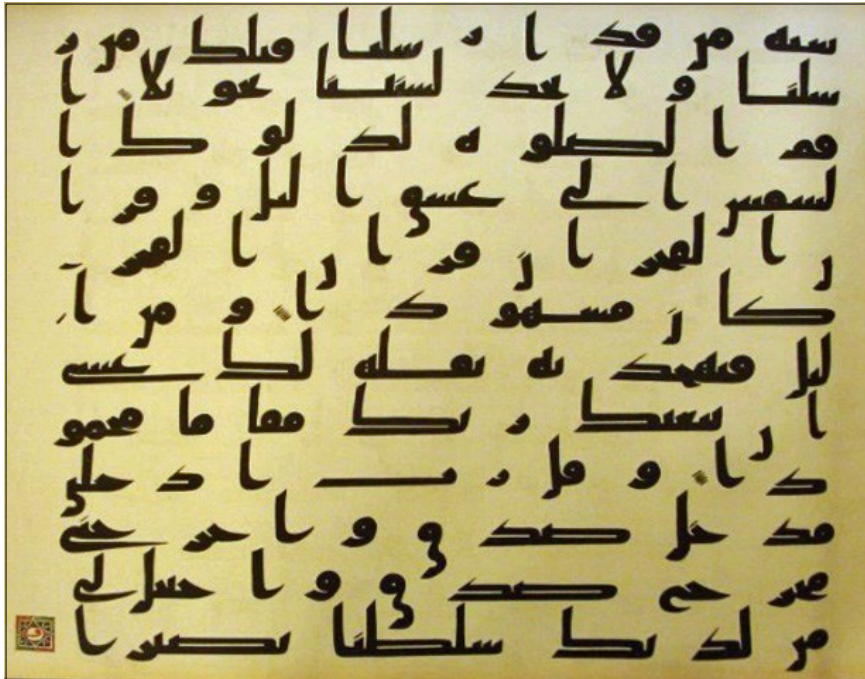 سنة من قد ارسلنا قبلك من ر
سلنا ولا تجد لسنتنا تحويلا ا
قم الصلوة لدلوك ا
لشمس الى غسق اليل وقرا
ن الفجر ان قران الفجر
كان مشهودا ومن ا
ليل فتهجد به نفلة لك عسى
ان يبعثك ربك مقاما محمو
دا وقل رب ادخلني
مدخل صدق واخرجني
مخرج صدق واجعل لي
من لدنك سلطنا نصيرا